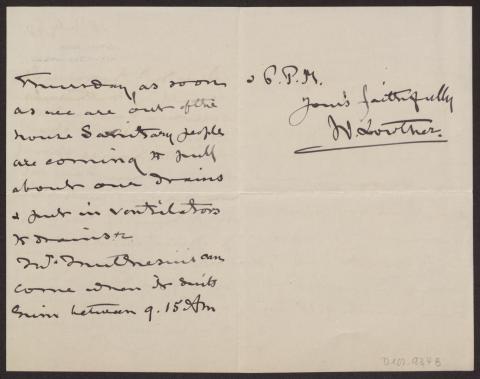 Thursday, as soon
as we are out of the
house Sanitary people
are coming to pull
about our drains
& put in ventilators
to drains &c
Mr. Muthesius can
come when it suits
him between 9.15 AM
& 6. P.M.
Yours faithfully
W Lowther.
D102-9343